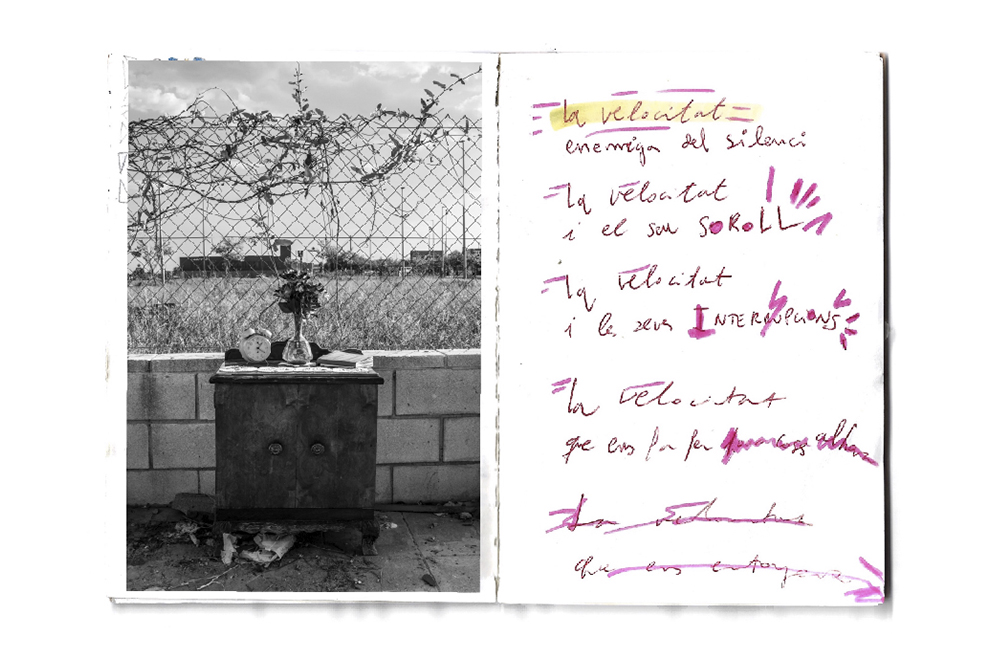 la velocitat
enemiga del silenci
la velocitat
i el seu SOROLL
la velocitat
i les seves INTERRUPCIONS
la velocitat
que ens fa fer
La velocitat
que ens